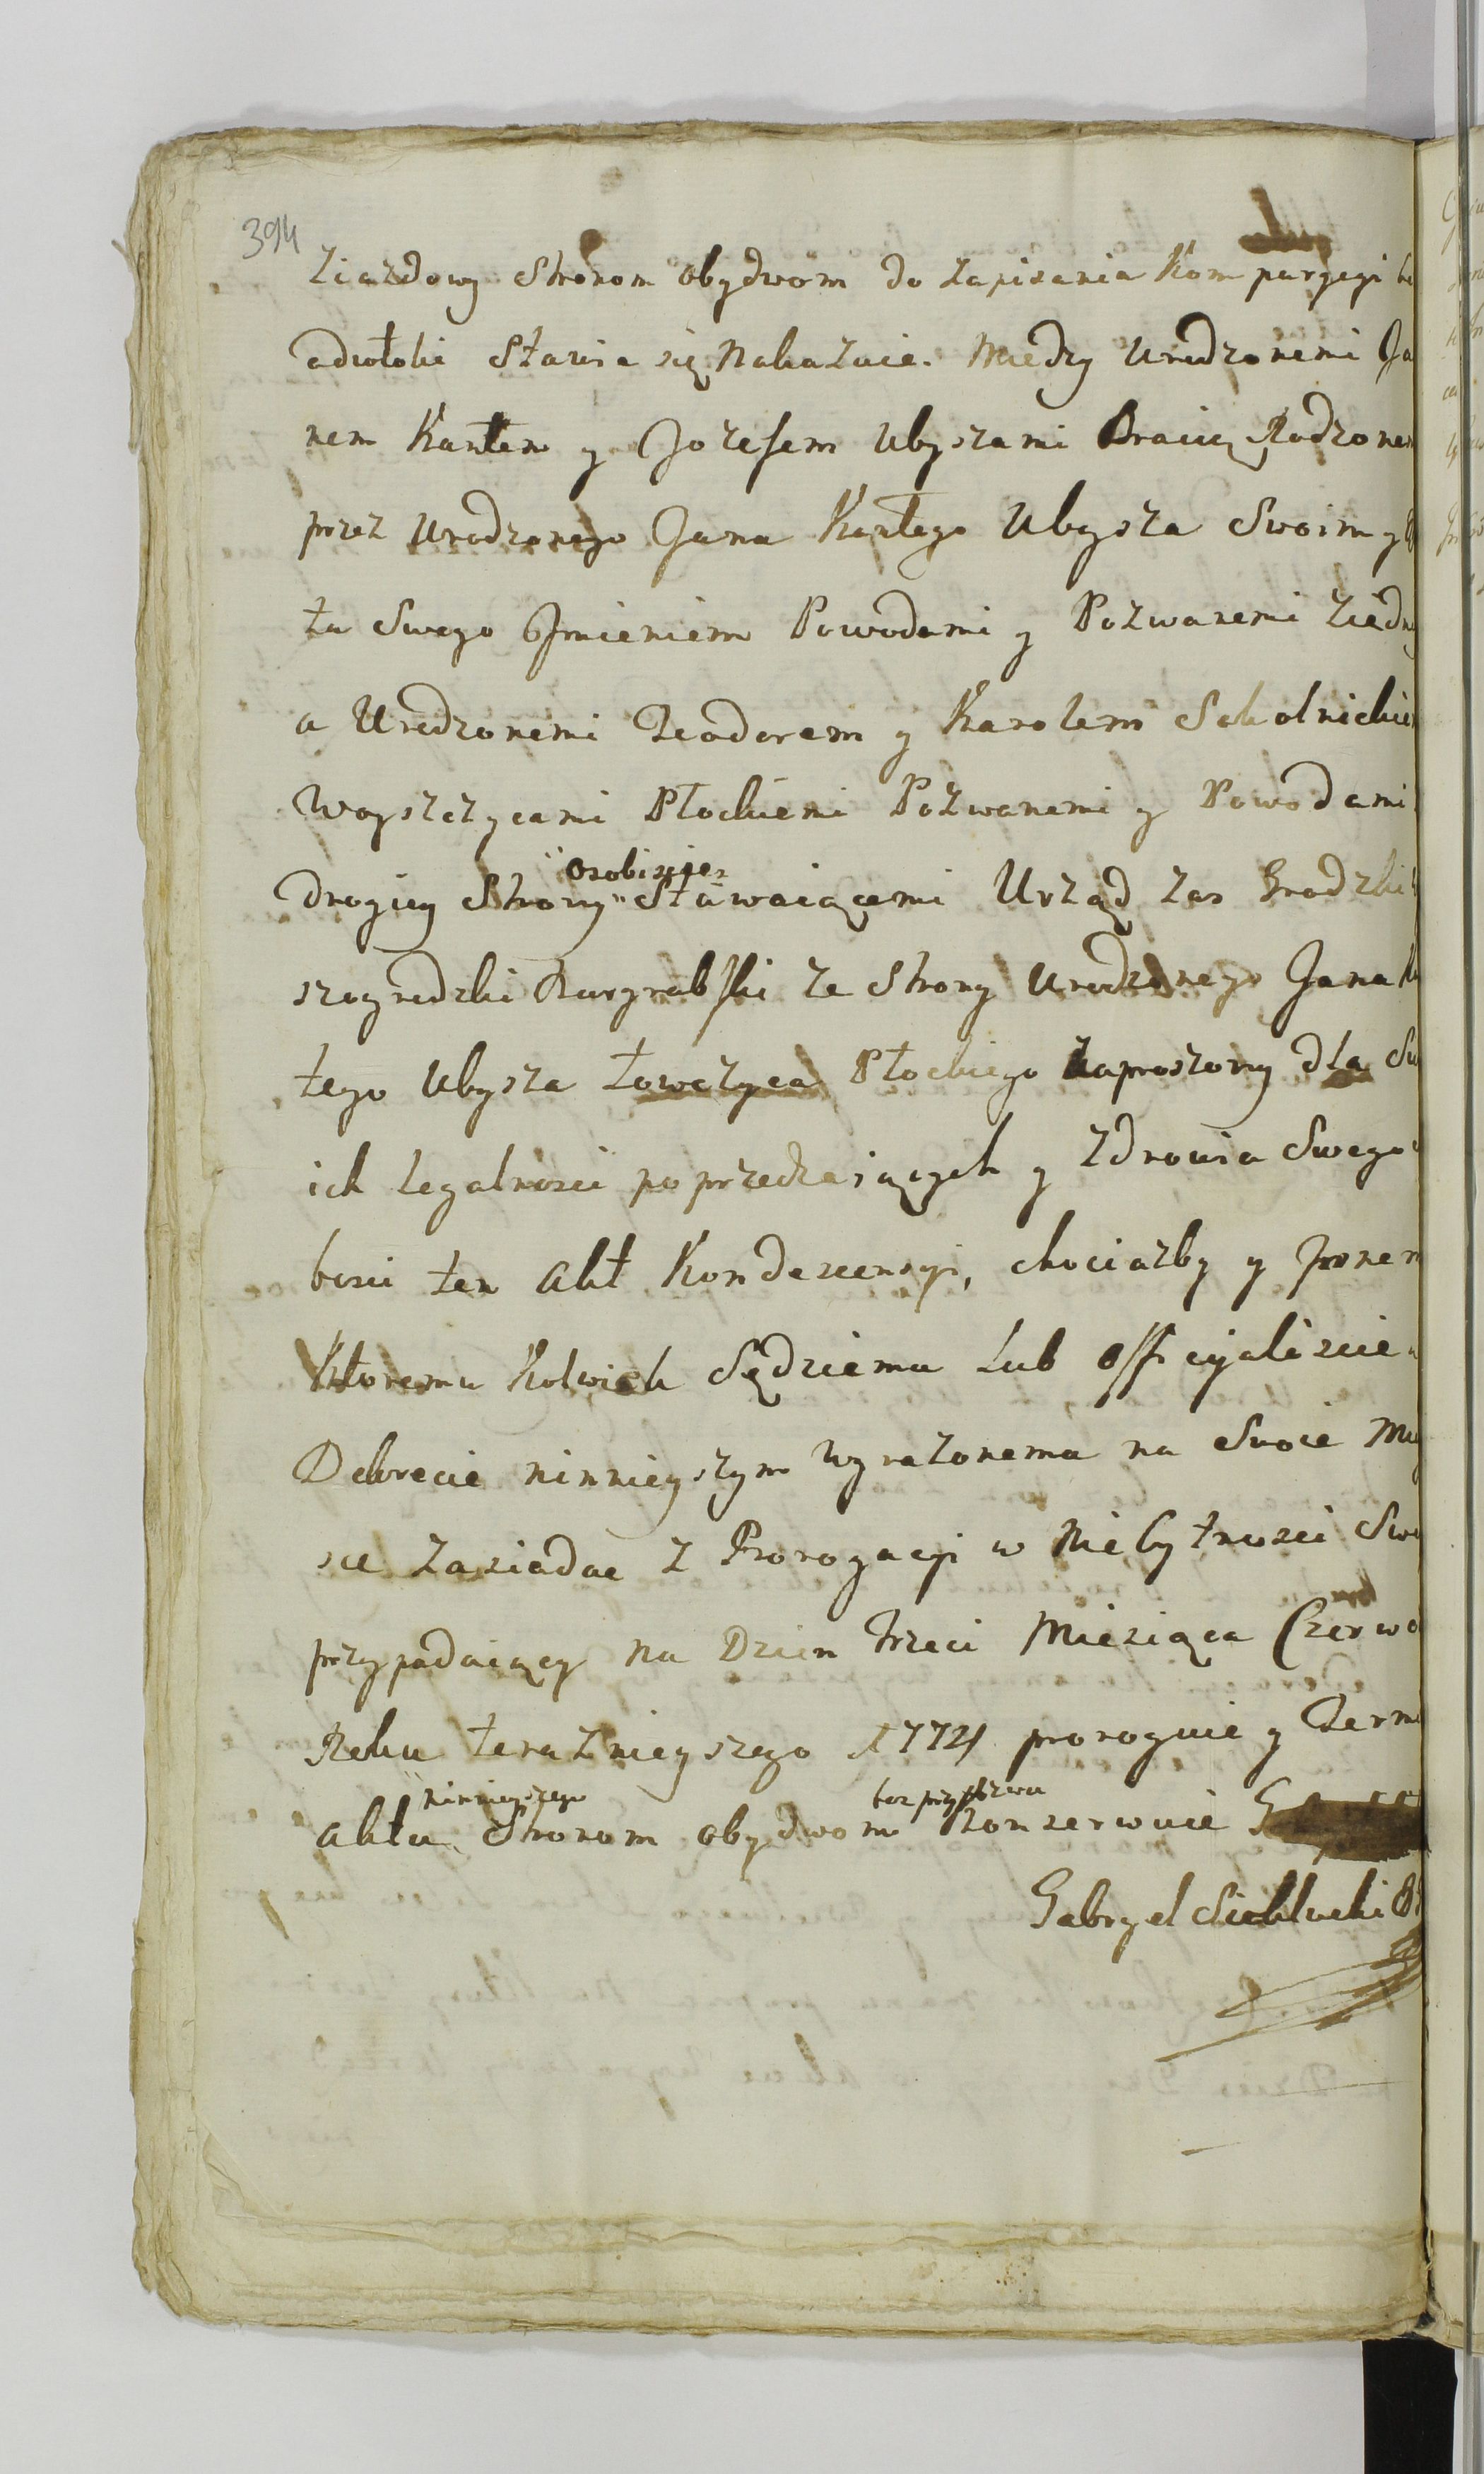 394
Ziazdowy Stronom obydwom do Zapisania Komparycyi be
adwokli Stawia się Nakazuie. Miedzy Urodzonemi Ja
nem Kantem y Jozefem Ubyszami Braciey Rodzonem
przez Urodzonego Jana Kantego Ubysza Swoim y B
ta Swego Jmieniem Powodami y Pozwanemi Ziedny
a Urodzonemi Teodorem y Karolem Sokolnickie
Woyszczycami Płockiemi Pozwanemi y Powodami
osobiscie
drogiey Strony Stawaiącemi Urząd zas Grodzki
szogrodzki Burgrabski ze Strony Urodzonego Jana K
tego Ubysza Łowczyca Płockiego zaproszony dla Sw
ich legalnosci poprzedzaiących y Zdrowia Swego
bosci ten akt Kondescensyi, chociażby y
Ktoremu Kolwiek Sędziemu Lub officyaliscie
Dekrecie ninnieyszym wyrażonemu na Swoie Mie
sce Zasiadac z Prorogacyi w Niebytnosci Swo
przypadaiący na Dzien Trzeci Miesiąca Czerwc
Roku teraznieyszego 1774 proroguie y Term
ninnieyszego bez przyszwu
aktu Stronom obydwom Konserwuie
Gabryel Sieklucki B